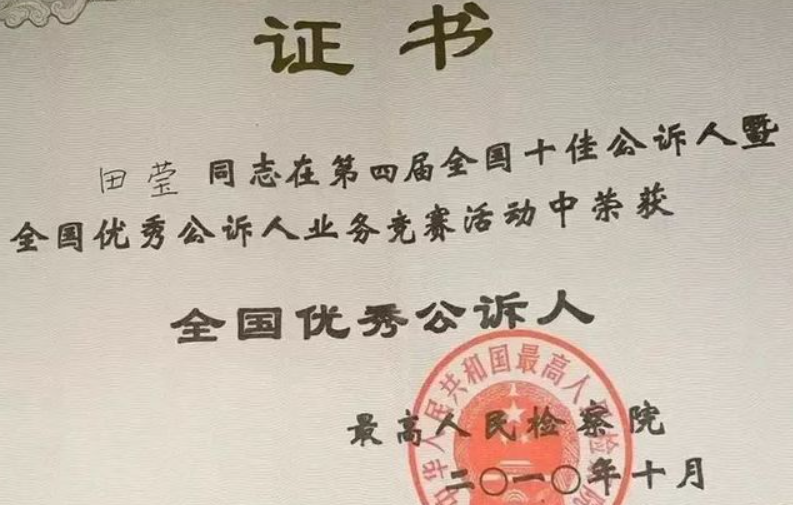 证书
田莹 同志在第四届全国十佳公诉人暨
全国优秀公诉人业务竞赛活动中荣获
全国优秀公诉人
中华人民共和国最高人民检
最高人民检察院
二〇一〇年十月